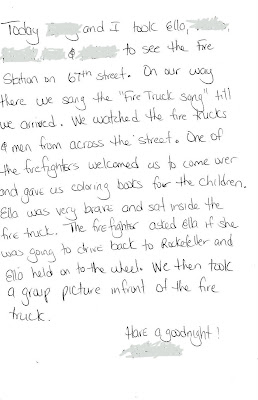 Today and I took Ella,
& to see the fire
Station on 67th street. On our way
there we sang the "Fire Truck song" till
we arrived. We watched the fire trucks
& men from across the street. One of
the firefighters welcomed us to come over
and gave us coloring books for the children.
Ella was very brave and sat inside the
fire truck. The firefighter asked Ella if she
was going to drive back to Rockefeller and
Ella held on to the wheel. We then took
a group picture infront of the fire
truck.
Have a goodnight!